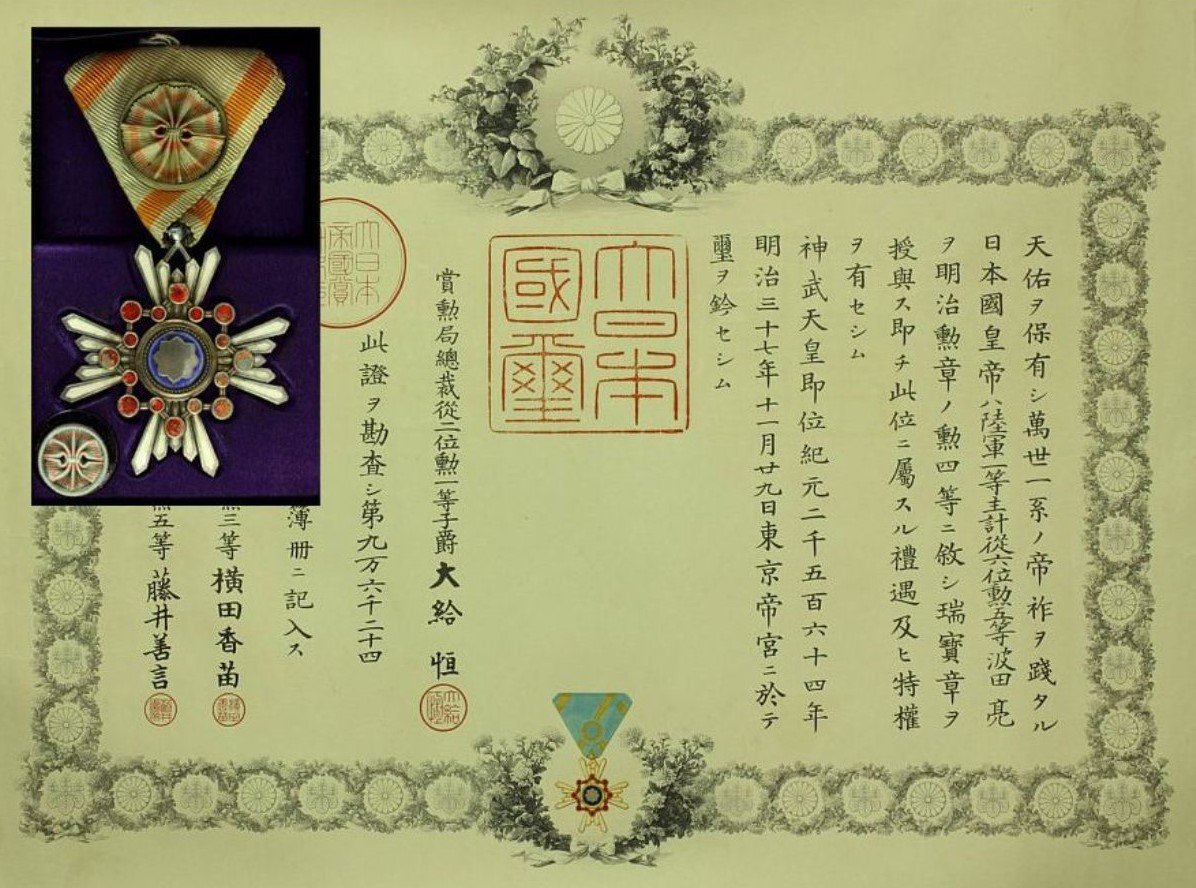 天佑ヲ保有シ萬世一系ノ帝祚ヲ踐タル
日本國皇帝ハ陸軍一等主計從六位勲五等波田亮
ヲ明治勲章ノ勲四等ニ敘シ瑞寶章ヲ
授與ス即チ此位ニ屬スル禮遇及ヒ特權
ヲ有セシム
神武天皇即位紀元二千五百六十四年
明治三十七年十一月廿九日東京帝宮ニ於テ
璽ヲ鈐セシム
大日本
國璽
賞勲局總裁從二位勲一等子爵大給恒
此證ヲ勘査シ第九万六千二十四
簿冊ニ記入ス
三等横田香苗
五等藤井善言